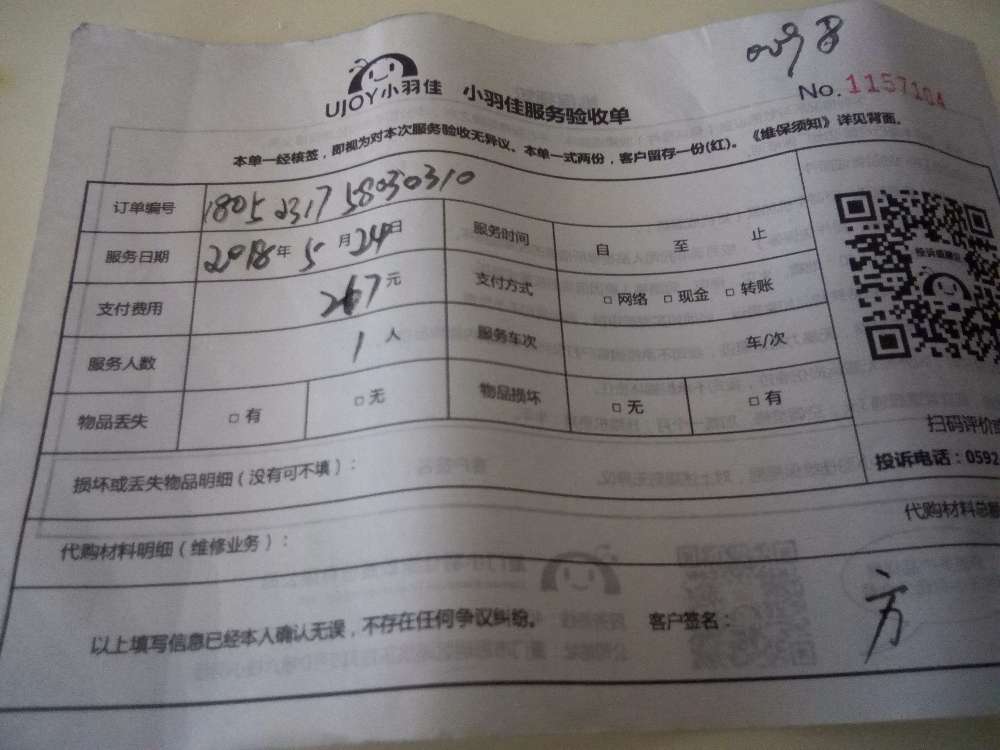 UJOY小羽佳 小羽佳服务验收单
No. 1157104
本单一经核签，即视为对本次服务验收无异议。本单一式两份，客户留存一份(红)。《维保须知》详见背面。
订单编号 1805231758030310
服务日期 2018年 5 月 24日 服务时间 自 至 止
支付费用 267元 支付方式 □ 网络 □ 现金 □ 转账
服务人数 1 人 服务车次 车/次
物品丢失 □ 有 □ 无 物品损坏 □ 无 □ 有
扫码评价
投诉电话：0592
损坏或丢失物品明细（没有可不填）：
代购材料总
代购材料明细（维修业务）：
以上填写信息已经本人确认无误，不存在任何争议纠纷。 客户签名： 方